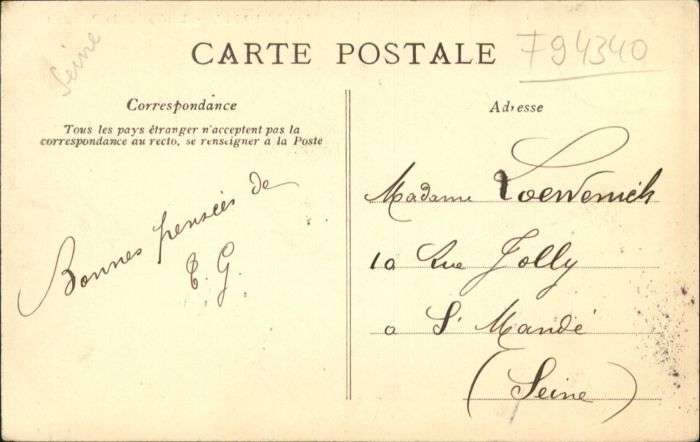 Seine
CARTE POSTALE
794340
Correspondance
Tous les pays étranger n'acceptent pas la
correspondance au recto, se renseigner à la Poste
Bonnes pensées de
E. G.
Adresse
Madame Loewenich
10 Rue Jolly
a St Mandé
(Seine)